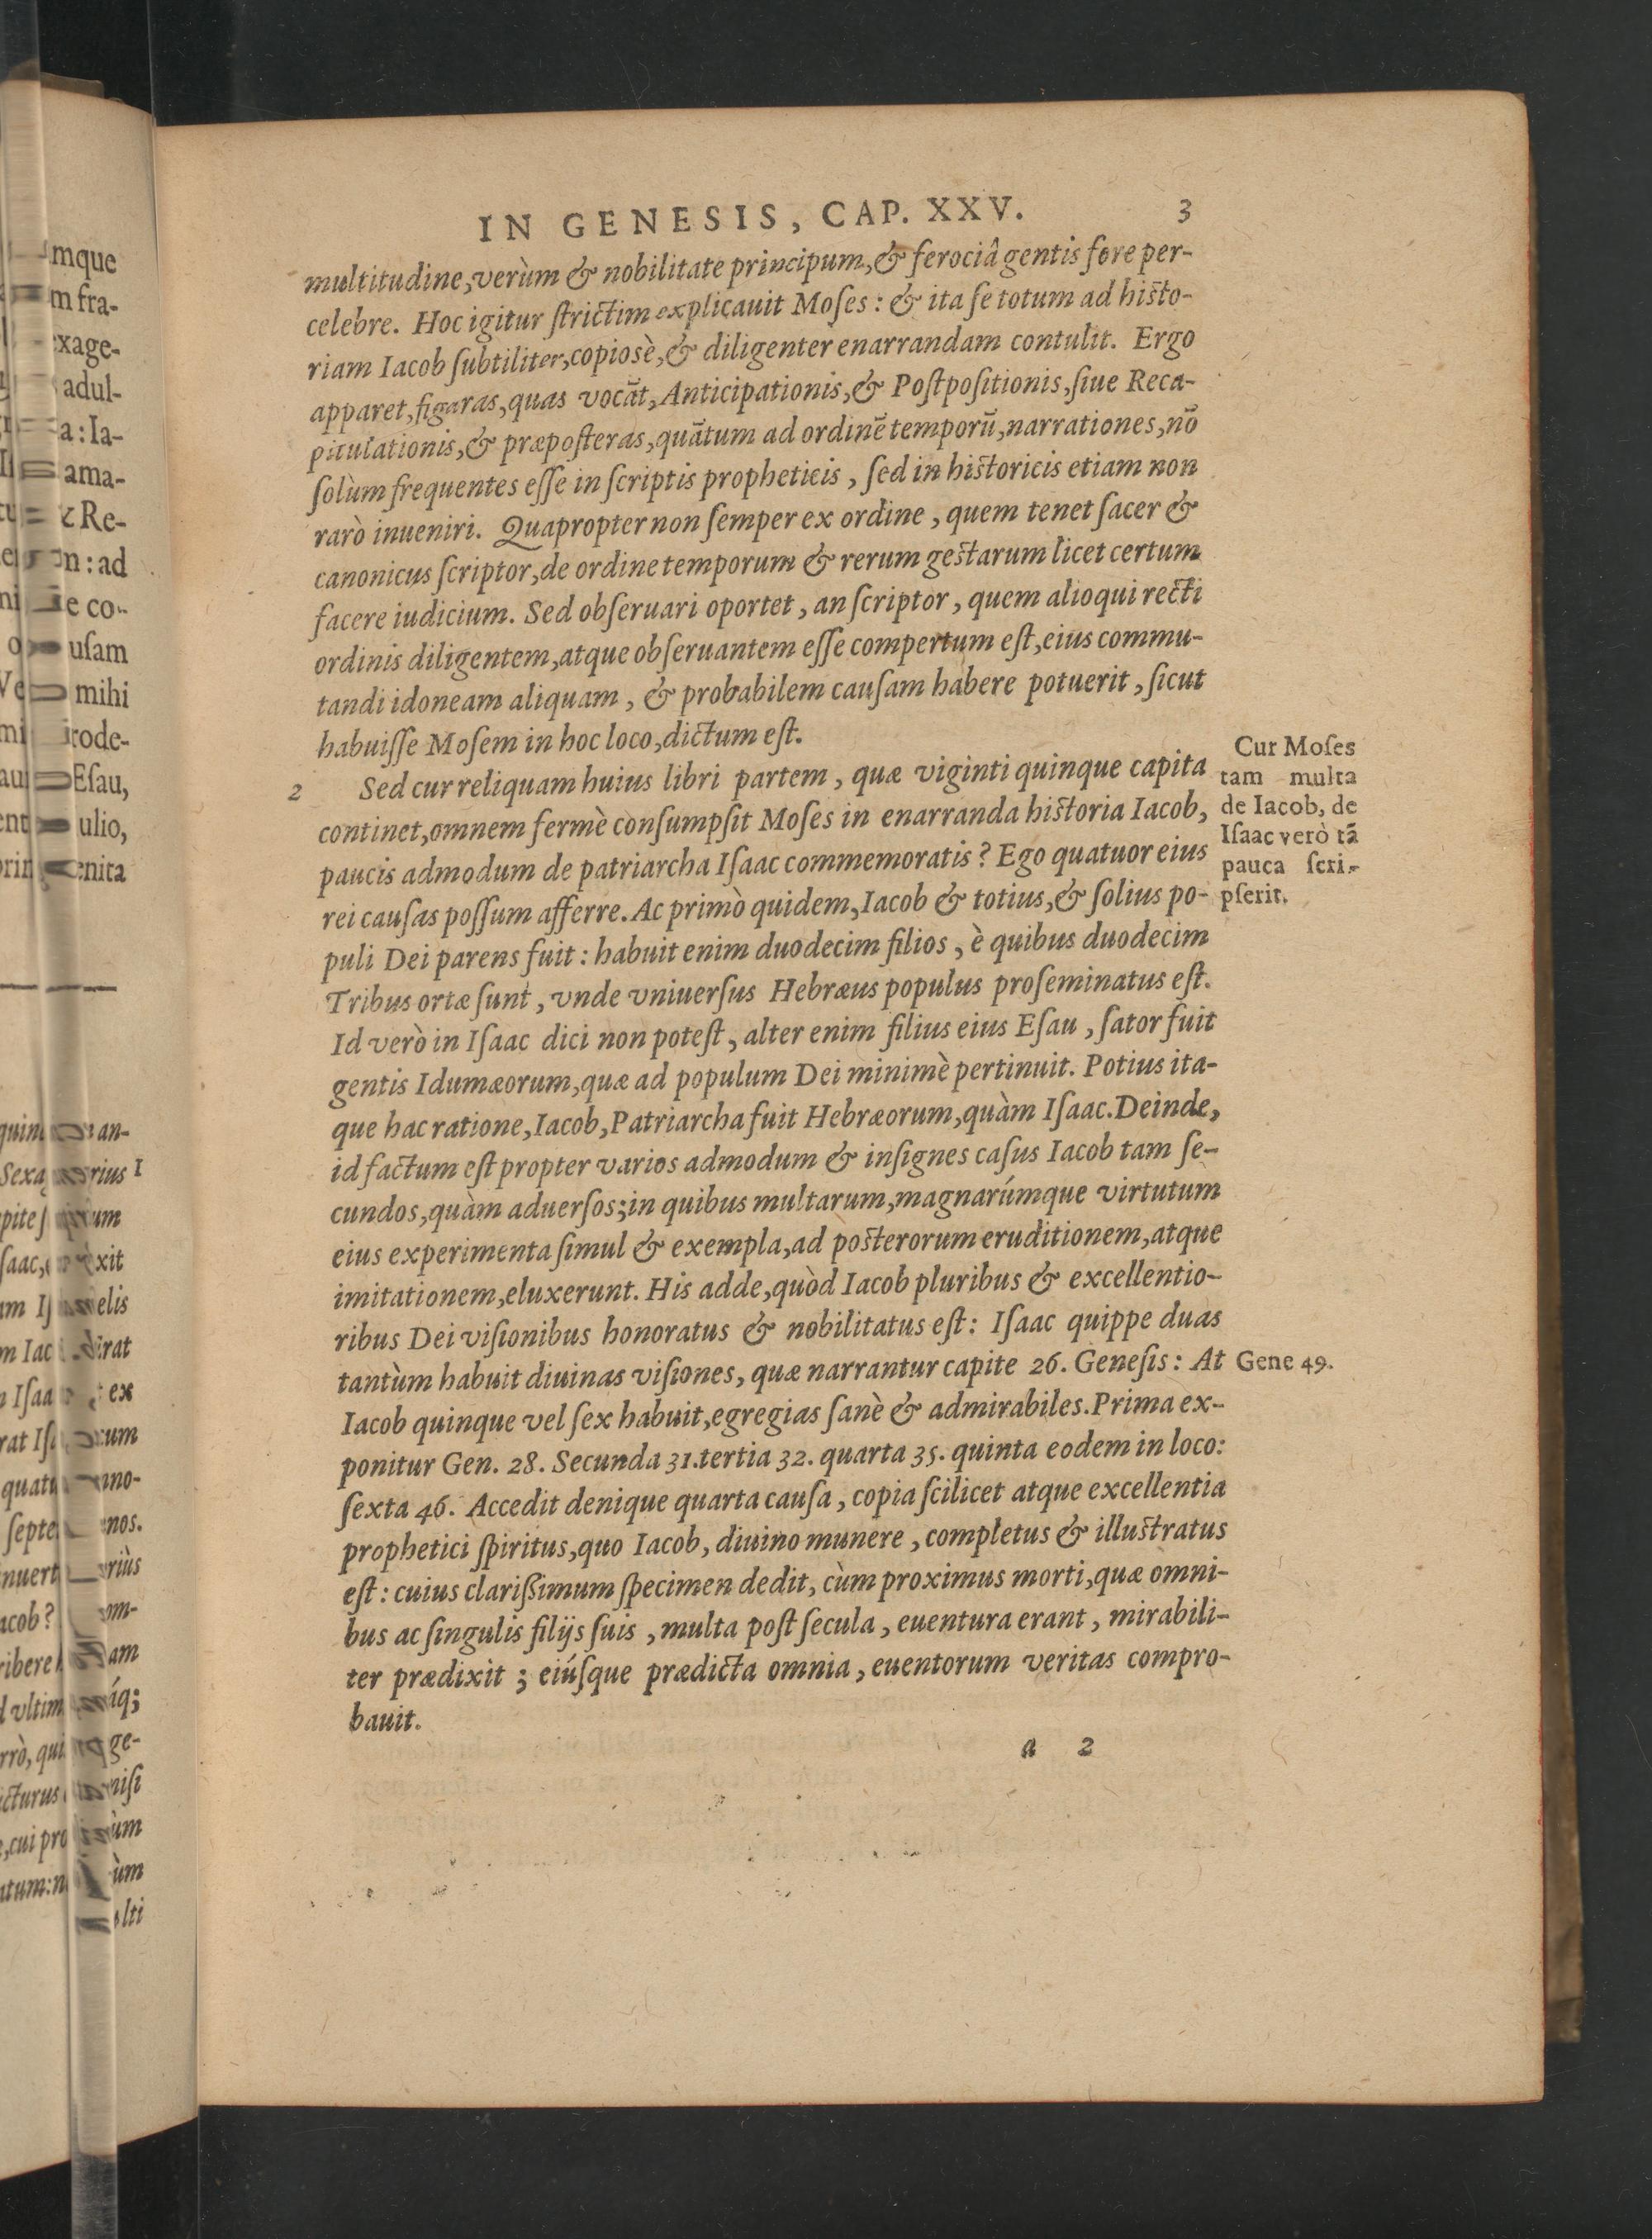 IN GENESIS, CAP. XXV. 3
multitudine, verùm & nobilitate principum, & ferociâ gentis fore per-
celebre. Hoc igitur ſtrictim explicauit Moſes: & ita ſe totum ad hiſto-
riam Iacob ſubtiliter, copiosè, & diligenter enarrandam contulit. Ergo
apparet, figuras, quas vocāt, Anticipationis, & Poſtpoſitionis, ſiue Reca-
pitulationis, & præpoſteras, quātum ad ordinē temporū, narrationes, nō
ſolùm frequentes eſſe in ſcriptis propheticis, ſed in hiſtoricis etiam non
rarò inueniri. Quapropter non ſemper ex ordine, quem tenet ſacer &
canonicus ſcriptor, de ordine temporum & rerum geſtarum licet certum
facere iudicium. Sed obſeruari oportet, an ſcriptor, quem alioqui recti
ordinis diligentem, atque obſeruantem eſſe compertum eſt, eius commu-
tandi idoneam aliquam, & probabilem cauſam habere potuerit, ſicut
habuiſſe Moſem in hoc loco, dictum eſt.
2 Sed cur reliquam huius libri partem, quæ viginti quinque capita
continet, omnem fermè conſumpſit Moſes in enarranda hiſtoria Iacob,
paucis admodum de patriarcha Iſaac commemoratis? Ego quatuor eius
rei cauſas poſſum afferre. Ac primò quidem, Iacob & totius, & ſolius po-
puli Dei parens fuit: habuit enim duodecim filios, è quibus duodecim
Tribus ortæ ſunt, vnde vniuerſus Hebræus populus proſeminatus eſt.
Id verò in Iſaac dici non poteſt, alter enim filius eius Eſau, ſator fuit
gentis Idumæorum, quæ ad populum Dei minimè pertinuit. Potius ita-
que hac ratione, Iacob, Patriarcha fuit Hebræorum, quàm Iſaac. Deinde,
id factum eſt propter varios admodum & inſignes caſus Iacob tam ſe-
cundos, quàm aduerſos; in quibus multarum, magnarúmque virtutum
eius experimenta ſimul & exempla, ad poſterorum eruditionem, atque
imitationem, eluxerunt. His adde, quòd Iacob pluribus & excellentio-
ribus Dei viſionibus honoratus & nobilitatus eſt: Iſaac quippe duas
tantùm habuit diuinas viſiones, quæ narrantur capite 26. Geneſis: At
Iacob quinque vel ſex habuit, egregias ſanè & admirabiles. Prima ex-
ponitur Gen. 28. Secunda 31. tertia 32. quarta 35. quinta eodem in loco:
ſexta 46. Accedit denique quarta cauſa, copia ſcilicet atque excellentia
prophetici ſpiritus, quo Iacob, diuino munere, completus & illuſtratus
eſt: cuius clariſſimum ſpecimen dedit, cùm proximus morti, quæ omni-
bus ac ſingulis filijs ſuis, multa poſt ſecula, euentura erant, mirabili-
ter prædixit; eiúſque prædicta omnia, euentorum veritas compro-
bauit.
a 2
Cur Moſes
tam multa
de Iacob, de
Iſaac verò tā
pauca ſcri-
pſerit.
Gene 49.
mque
m fra-
xage-
adul-
a: Ia-
ama-
Re-
n: ad
e co-
uſam
mihi
rode-
Eſau,
ulio,
enita